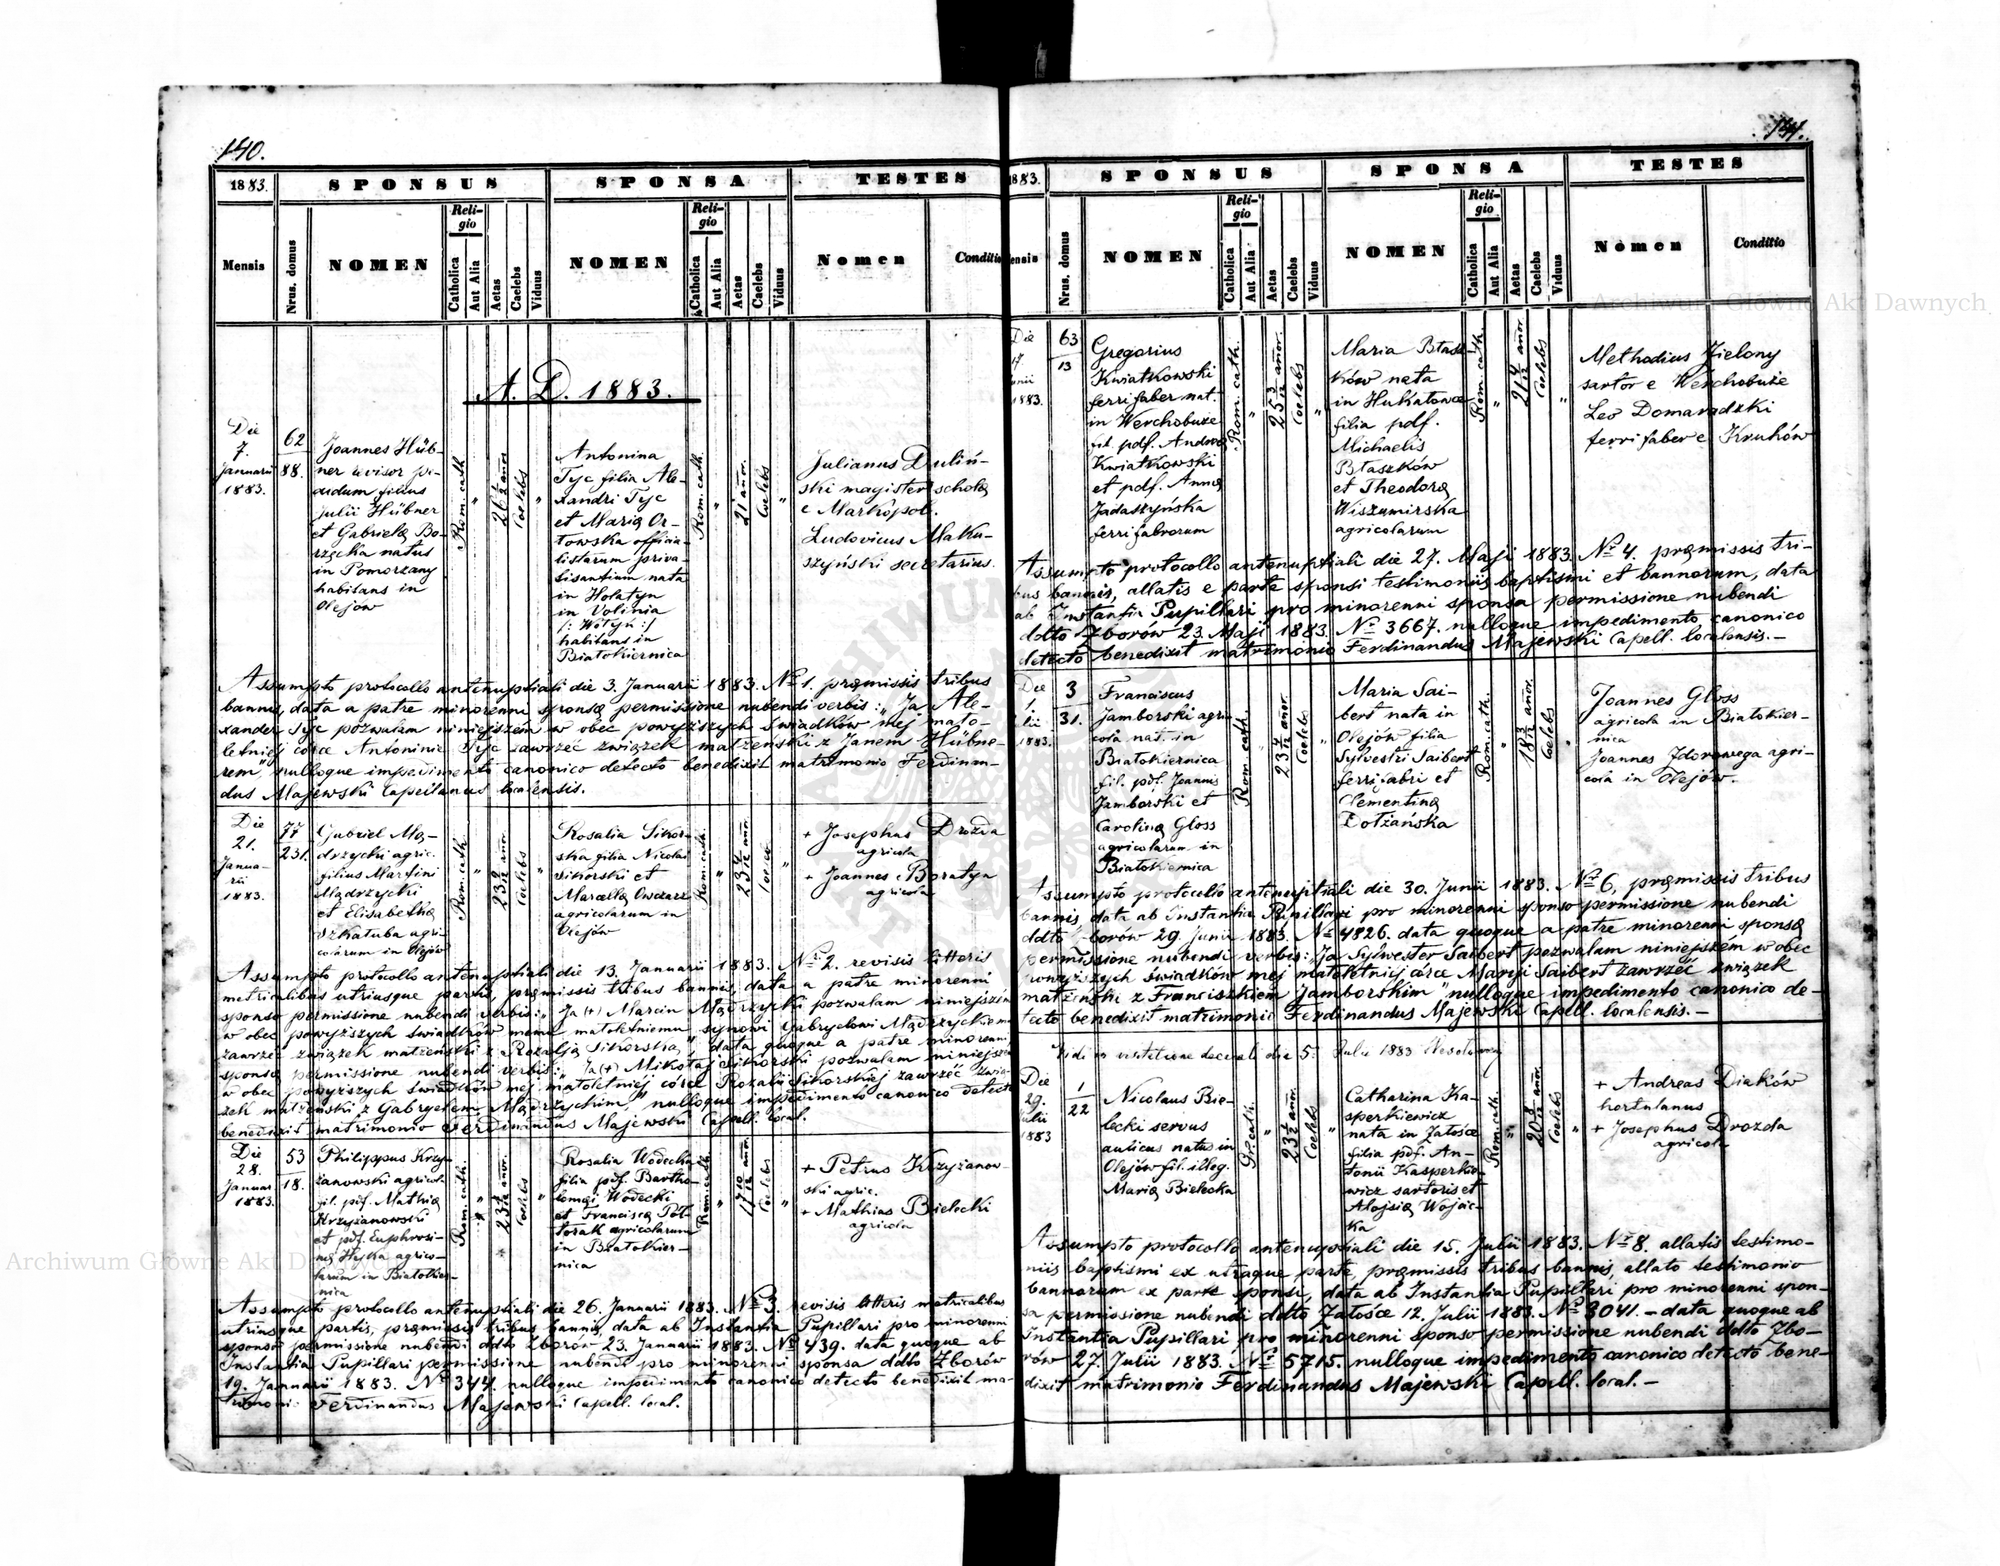 140.
1883.
SPONSUS
SPONSA
TESTES
Mensis
Nrus. domus
NOMEN
Religio
Catholica
Aut Alia
Aetas
Caelebs
Viduus
NOMEN
Religio
Catholica
Aut Alia
Aetas
Caelebs
Viduus
Nomen
Conditio
A. D. 1883.
Die
7.
Januarii
1883.
62
88.
Joannes Hüb-
ner revisor
filius
Julii Hübner
et Gabrielę Bo-
rzęcka natus
in Pomorzany
habitans in
Olejów
Rom. cath.
"
26 annor.
Coelebs
"
Antonina
Tyc filia Ale-
xandri Tyc
et Marię Or-
łowska officia-
listarum priva-
tisantium nata
in Hołatyn
in Volinia
/: Wołyń :/
habitans in
Białokiernica
Rom. cath.
"
21 añor.
Coelebs
"
Julianus Duliń-
ski magister scholę
e Markopol.
Ludovicus Maku-
szyński secretarius.
Assumpto protocollo antenuptiali die 3. Januarii 1883. Nº 1. pręmissis tribus
bannis, data a patre minorenni sponsę permissione nubendi verbis: „Ja Ale-
xander Tyc pozwalam niniejszém w obec powyższych świadków mej mało-
letniej córce Antoninie Tyc zawrzeć związek małżeński z Janem Hübne-
rem," nulloque impedimento canonico detecto benedixit matrimonio Ferdinan-
dus Majewski Capellanus localensis.
Die
21.
Janua-
rii
1883.
77
231.
Gabriel Mą-
drzycki agric.
filius Martini
Mądrzycki
et Elisabethę
Szkatuba agri-
colarum in Olejów
Rom. cath.
"
23 añor.
Coelebs
"
Rosalia Sikor-
ska filia Nicolai
Sikorski et
Marcellę Owczarz
agricolarum in
Olejów
Rom. cath.
"
23 añor.
"
+ Josephus Drozda
agricola
+ Joannes Boratyn
agricola
Assumpto protocollo antenuptiali die 13. Januarii 1883. Nº 2. revisis litteris
metricalibus utriusque partis, pręmissis tribus bannis, data a patre minorenni
sponso permissione nubendi verbis: „Ja (+) Marcin Mądrzycki pozwalam niniejszém
w obec powyższych świadków memu małoletniemu synowi Gabryelowi Mądrzyckiemu
zawrzeć związek małżeński z Rozalją Sikorską," data quoque a patre minorenni
sponsę permissione nubendi verbis: „Ja (+) Mikołaj Sikorski pozwalam niniejszém
w obec powyższych świadków mej małoletniej córce Rozalii Sikorskiej zawrzeć zwią-
zek małżeński z Gabryelem Mądrzyckim," nulloque impedimento canonico detecto
benedixit matrimonio Ferdinandus Majewski Capell. local.
Die
28.
Januar.
1883.
53
18.
Philippus Krzy-
żanowski agricola
fil. pdf. Mathię
Krzyżanowski
et pdf. Euphrosi-
nę Hyka agrico-
larum in Białokier-
nica
Rom. cath.
"
23 añor.
Coelebs
"
Rosalia Wodecka
filia pdf. Bartho-
lomęi Wodecki
et Franciscę Poł-
torak agricolarum
in Białokier-
nica
Rom. cath.
"
17 10/12 añor.
Coelebs
"
+ Petrus Krzyżanow-
ski agric.
+ Mathias Bielecki
agricola
Assumpto protocollo antenuptiali die 26. Januarii 1883. Nº 3. revisis litteris metricalibus
utriusque partis, pręmissis tribus bannis, data ab Instantia Pupillari pro minorenni
sponso permissione nubendi ddto Zborów 23. Januarii 1883. Nº 439. data quoque ab
Instantia Pupillari permissione nubendi pro minorenni sponsa ddto Zborów
19. Januarii 1883. Nº 344. nulloque impedimento canonico detecto benedixit ma-
trimonio Ferdinandus Majewski Capell. local.
141.
1883.
SPONSUS
SPONSA
TESTES
Mensis
Nrus. domus
NOMEN
Religio
Catholica
Aut Alia
Aetas
Caelebs
Viduus
NOMEN
Religio
Catholica
Aut Alia
Aetas
Caelebs
Viduus
Nomen
Conditio
Die
17
Junii
1883.
63
13
Gregorius
Kwiatkowski
ferrifaber nat.
in Werchobuże
fil. pdf. Andreę
Kwiatkowski
et pdf. Annę
Jadaszyńska
ferrifabrorum
Rom. cath.
"
25 3/12 añor.
Coelebs
"
Maria Błasz-
ków nata
in Hukałowce
filia pdf.
Michaelis
Błaszków
et Theodorę
Wiszumirska
agricolarum
Rom. cath.
"
21 4/12 añor.
Coelebs
"
Methodius Zielony
sartor e Werchobuże
Leo Domaradzki
ferrifaber e Kruhów
Assumpto protocollo antenuptiali die 27. Maji 1883. Nº 4. pręmissis tri-
bus bannis, allatis e parte sponsi testimoniis baptismi et bannorum, data
ab Instantia Pupillari pro minorenni sponsa permissione nubendi
ddto Zborów 23. Maji 1883. Nº 3667. nulloque impedimento canonico
detecto benedixit matrimonio Ferdinandus Majewski Capell. localensis.—
Die
1.
Julii
1883.
3
31.
Franciscus
Jamborski agri-
cola nat. in
Białokiernica
fil. pdf. Joannis
Jamborski et
Carolinę Gloss
agricolarum in
Białokiernica
Rom. cath.
"
23 4/12 añor.
Coelebs
"
Maria Sai-
bert nata in
Olejów filia
Sylvestri Saibert
ferrifabri et
Clementinę
Dołżańska
Rom. cath.
"
18 añor.
Coelebs
"
Joannes Gloss
agricola in Białokier-
nica
Joannes Zdorowega agri-
cola in Olejów.
Assumpto protocollo antenuptiali die 30. Junii 1883. Nº 6, pręmissis tribus
bannis, data ab Instantia Pupillari pro minorenni sponso permissione nubendi
ddto Zborów 29. Junii 1883. Nº 4826. data quoque a patre minorenni sponsę
permissione nubendi verbis: „Ja Sylwester Saibert pozwalam niniejszém w obec
powyższych świadków mej małoletniej córce Maryi Saibert zawrzeć związek
małżeński z Franciszkiem Jamborskim" nulloque impedimento canonico de-
tecto benedixit matrimonio Ferdinandus Majewski Capell. localensis.—
Vidi in visitatione decanali die 5. Julii 1883
Die
29.
Julii
1883
1
22
Nicolaus Bie-
lecki servus
aulicus natus in
Olejów fil. illeg.
Marię Bielecka
Gr. cath.
"
23 añor.
Coelebs
"
Catharina Ka-
sperkiewicz
nata in Załośce
filia pdf. An-
tonii Kasperkie-
wicz sartoris et
Aloysię Wójcic-
ka
Rom. cath.
"
20 8/12 añor.
Coelebs
"
+ Andreas Diaków
hortulanus
+ Josephus Drozda
agricola
Assumpto protocollo antenuptiali die 15. Julii 1883. Nº 8. allatis testimo-
niis baptismi ex utraque parte, pręmissis tribus bannis, allato testimonio
bannorum ex parte sponsi, data ab Instantia Pupillari pro minorenni spon-
sa permissione nubendi ddto Załośce 12. Julii 1883. Nº 3041.— data quoque ab
Instantia Pupillari pro minorenni sponso permissione nubendi ddto Zbo-
rów 27. Julii 1883. Nº 5715. nulloque impedimento canonico detecto bene-
dixit matrimonio Ferdinandus Majewski Capell. local.—
Archiwum Główne Akt Dawnych
Archiwum Główne Akt Dawnych